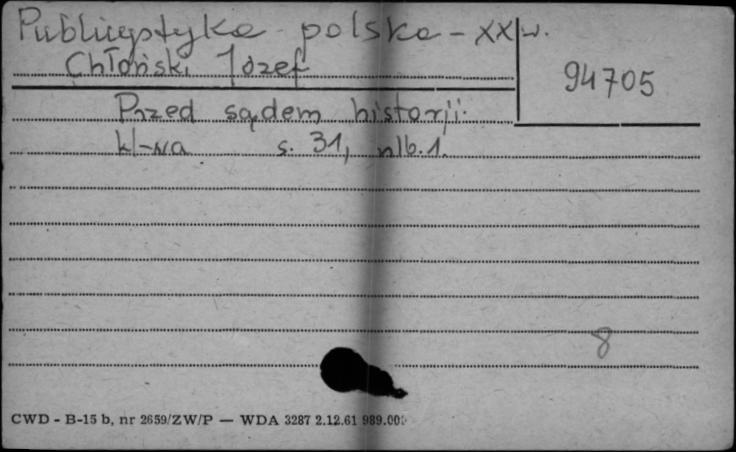 Publicystyka polska - XX w.
Chłoński Józef
94705
Przed sądem historji.
s. 31, nlb. 1.
8
CWD - B-15 b, nr 2659/ZW/P — WDA 3287 2.12.61 989.00